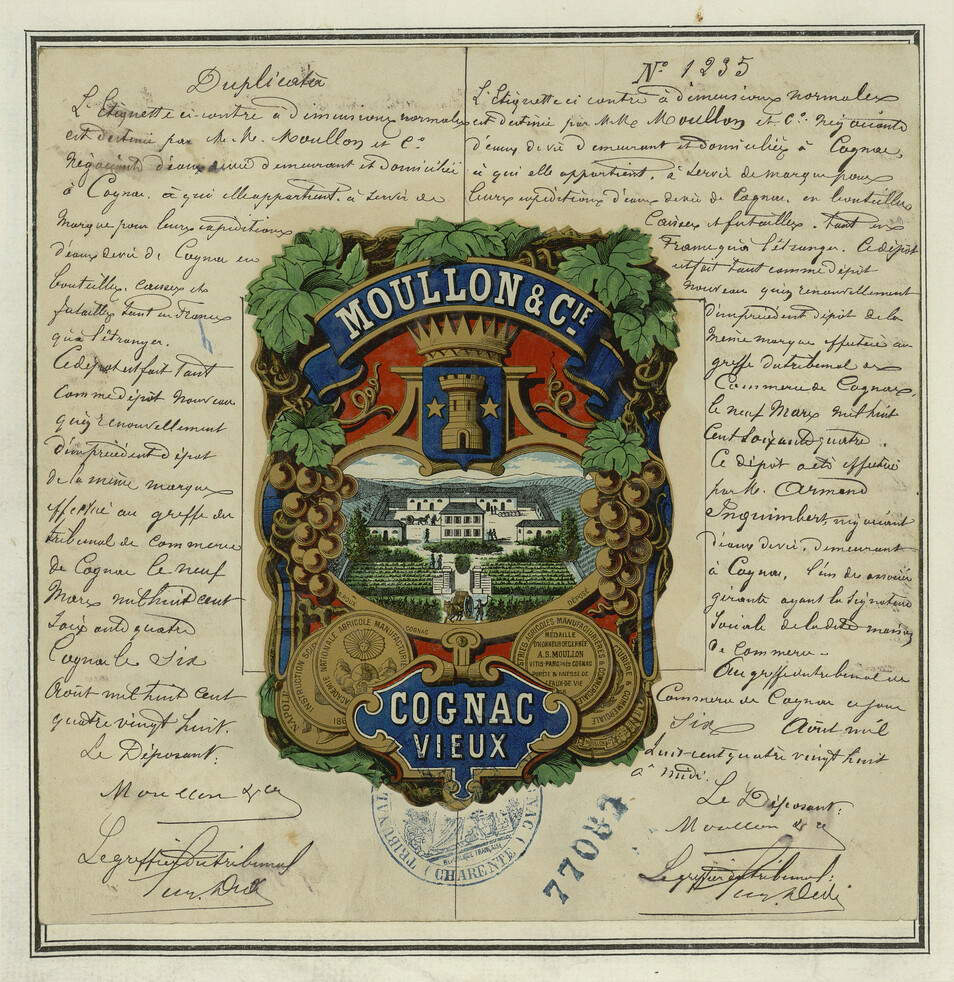 Duplicata
L'Etiquette ci-contre à dimensions normales
est destinée par M. M. Moullon et Cº.
Négociants d'eaux de vie demeurant et domiciliés
à Cognac, à qui elle appartient, à servir de
Marque pour leurs expéditions
d'eaux de vie de Cognac en
bouteilles, caisses et
futailles tant en France
qu'à l'étranger.
Ce dépôt est fait tant
comme dépôt nouveau
qu'en renouvellement
d'un précédent dépôt
de la même marque
effectué au greffe du
tribunal de commerce
de Cognac le neuf
Mars mil huit cent
soixante quatre
Cognac le Six
Août mil huit cent
quatre vingt huit.
Le Déposant:
Moullon & Cie
Le greffier du tribunal
Nº 1235
L'Etiquette ci contre à dimensions normales
est destinée par M.M. Moullon et Cº. négociants
d'eaux de vie demeurant et domiciliés à Cognac,
à qui elle appartient, à servir de marque pour
leurs expéditions d'eaux de vie de Cognac, en bouteilles
Caisses et futailles, tant en
France qu'à l'étranger. Ce dépôt
est fait tant comme dépôt
nouveau qu'en renouvellement
d'un précédent dépôt de la
même marque effectué au
greffe du tribunal de
Commerce de Cognac,
le neuf Mars mil huit
Cent soixante quatre.
Ce dépôt a été effectué
par M. Armand
Inquimbert négociant
d'eaux de vie, demeurant
à Cognac, l'un des associés
gérants ayant la signature
sociale de la dite maison
de Commerce.
Au greffe du tribunal de
Commerce de Cognac ce jour
Six Août mil
huit cent quatre vingt huit
à midi.
Le Déposant:
Moullon & Cie
Le greffier du tribunal:
MOULLON & CIE
DÉPOSÉ
COGNAC
INSTRUCTION
ACADÉMIE NATIONALE AGRICOLE MANUFACTURIÈRE
AGRICOLES MANUFACTURIÈRES & COMMERCIALES
MÉDAILLE
D'HONNEUR DÉCERNÉE
A.S. MOULLON
VITIS-PARC PRÈS COGNAC
PURETÉ & FINESSE DE
EAUX-DE-VIE
COGNAC
VIEUX
TRIBUNAL
RÉPUBLIQUE FRANÇAISE
(CHARENTE)
77082